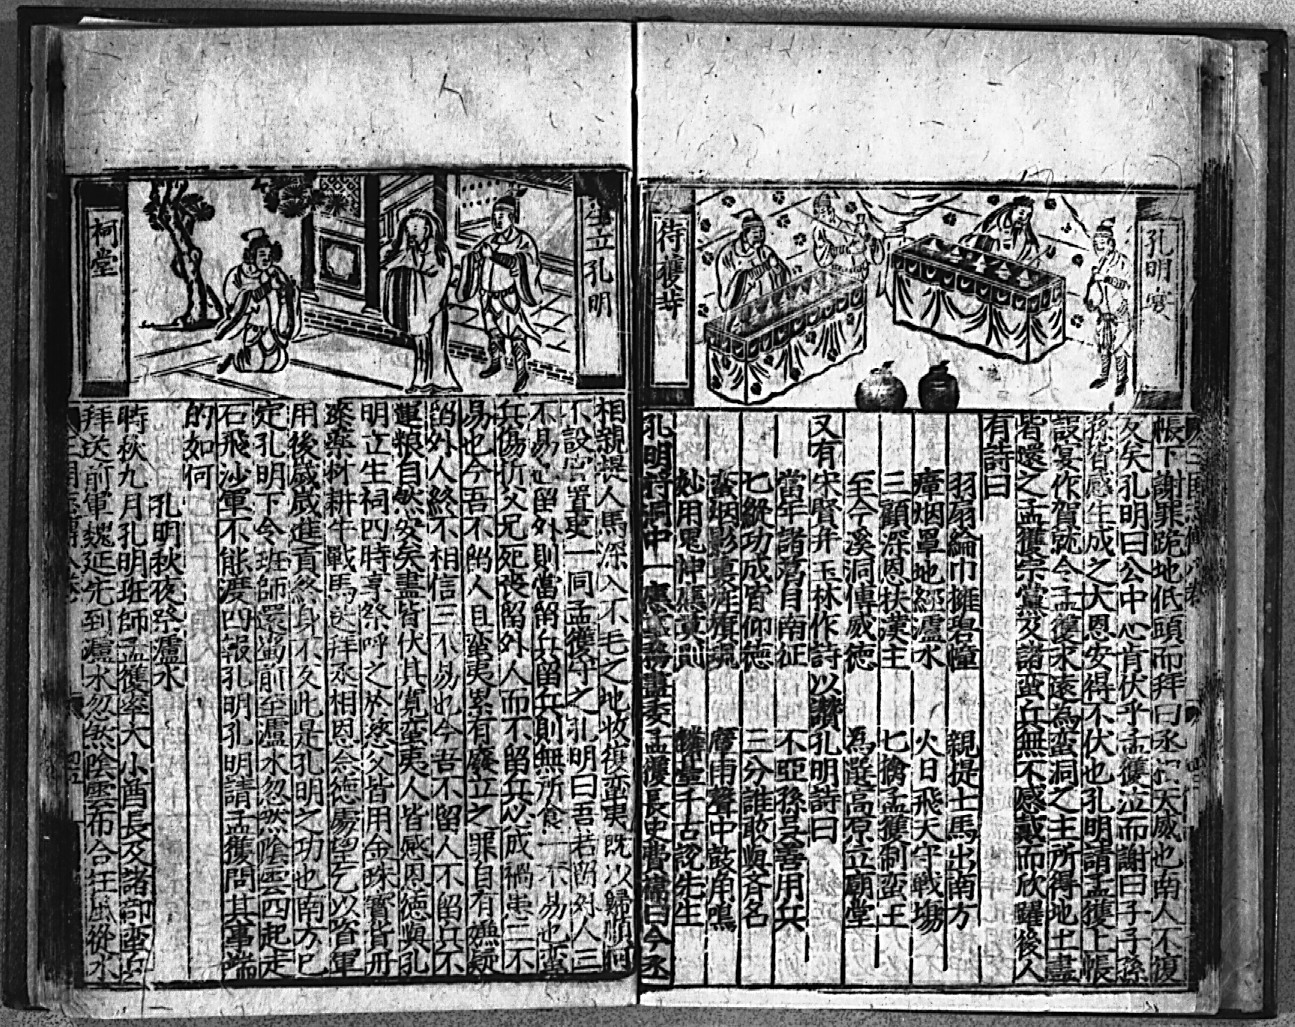 孔明宴
待獲等
帳下謝罪跪地低頭而拜曰丞相天威也南人不復
反矣孔明曰公中心肯伏乎孟獲泣而謝曰子子孫
孫皆感生成之大恩安得不伏也孔明請孟獲上帳
設宴作賀就令孟獲永遠為蛮洞之主所得地土盡
皆還之孟獲宗黨及諸蛮兵無不感戴而欣躍後人
有詩曰
羽扇綸巾擁碧幢 親提士馬出南方
瘴烟罩地經瀘水 火日飛天守戰場
三顧深恩扶漢主 七擒孟獲制蛮王
至今溪洞傳威德 為選高原立廟堂
又有宋賢井玉林作詩以讚孔明詩曰
當年諸葛自南征 不亞孫吳善用兵
七縱功成皆仰德 三分誰敢與齊名
蛮烟影裏旌旗 雨聲中鼓角鳴
妙用鬼神應莫 千古說先生
孔明將洞中一應事務盡委孟獲長史費禕曰今丞
生立孔明
祠堂
相親提人馬深入不毛之地收復蛮夷既以歸順何
不設官置吏一同孟獲守之孔明曰吾若留外人三
不易也留外則當留兵留兵則無所食一不易也蛮
兵傷折父兄死喪留外人而不留兵必成禍患三不
易也今吾不留人且蛮夷累有廢立之罪自有嫌疑
留外人終不相信三不易也今吾不留人不留兵不
運粮自然安矣盡皆伏其寬蛮夷人皆感恩德與孔
明立生祠四時享祭呼之於慈父皆用金珠寶皆丹
漆藥材耕牛戰馬送拜丞相恩念德處望乞以資軍
用後歲歲進貢終身不久此是孔明之功也南方已
定孔明下令班師還蜀前至瀘水忽然陰雲四起走
石飛沙軍不能渡四報孔明孔明請孟獲問其事端
的如何
孔明秋夜祭瀘水
時秋九月孔明班師孟獲率大小酋長及諸部蛮
拜送前軍魏延先到瀘水忽然陰雲布合狂風從水